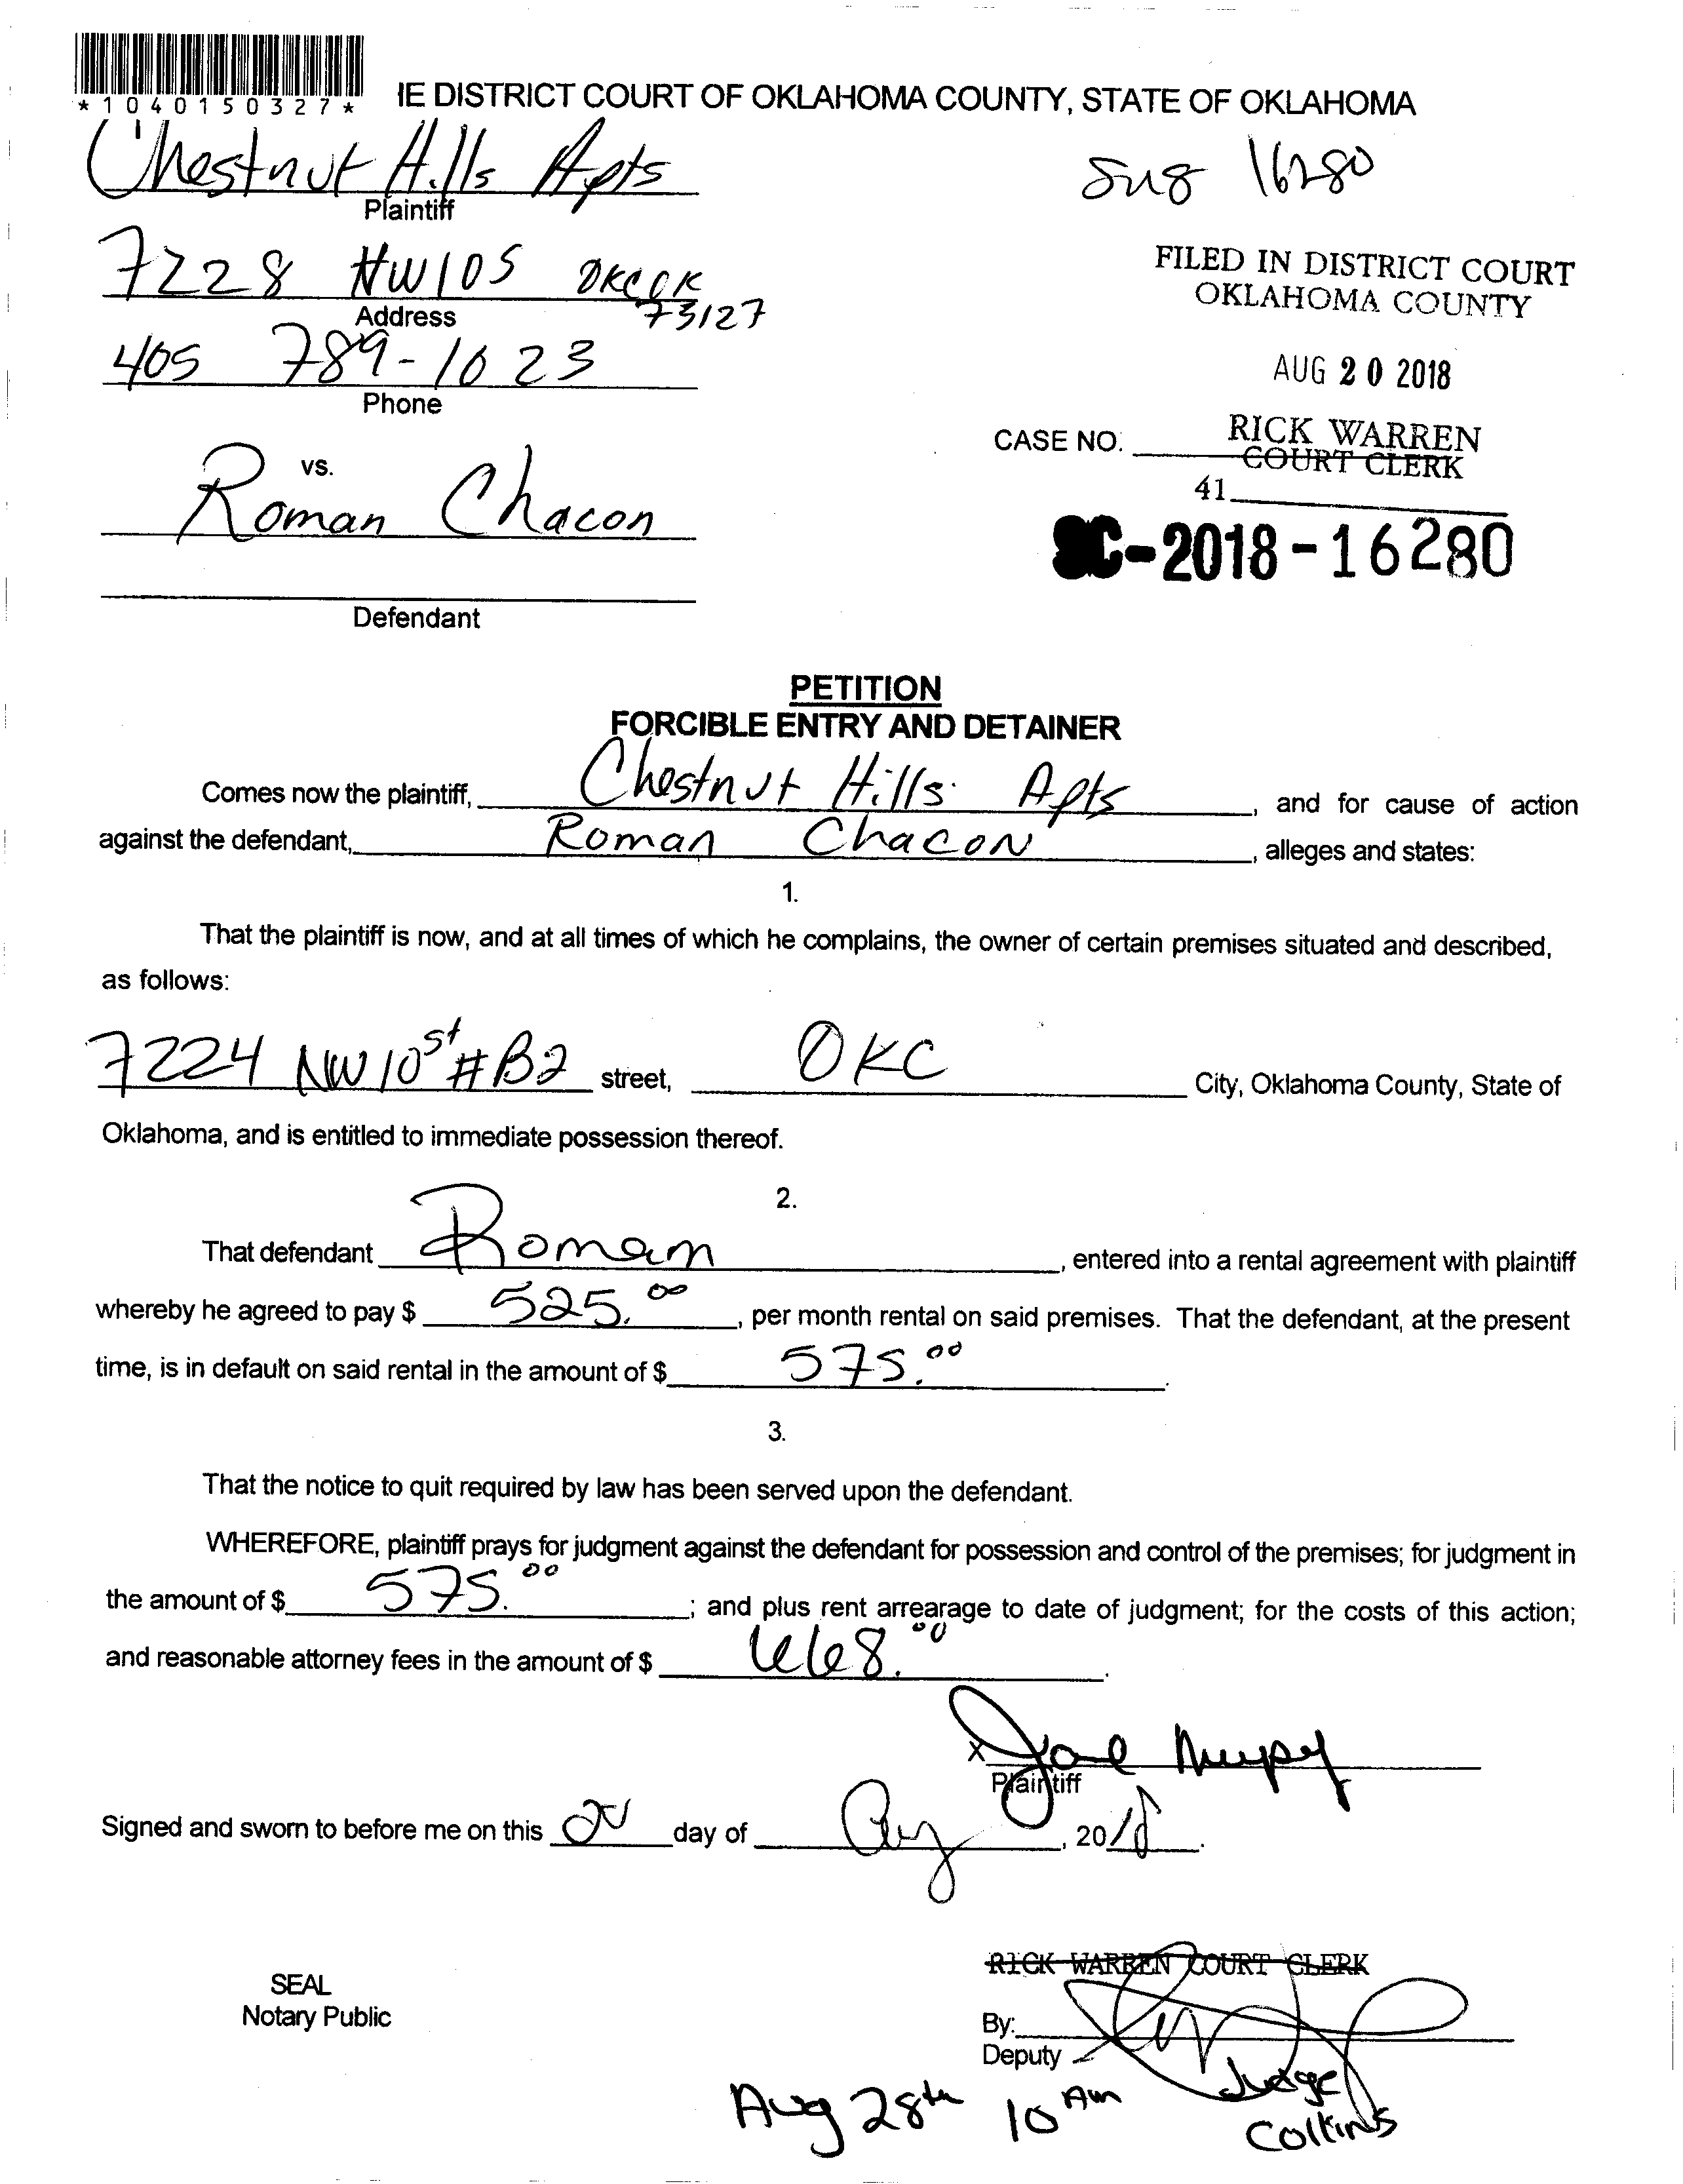 *1040150327*
IE DISTRICT COURT OF OKLAHOMA COUNTY, STATE OF OKLAHOMA
Chestnut Hills Apts
Plaintiff
16280
7228 NW 10S OKC OK
73127
Address
FILED IN DISTRICT COURT
OKLAHOMA COUNTY
405 789-1023
Phone
AUG 20 2018
CASE NO.
RICK WARREN
COURT CLERK
41
vs.
Roman Chacon
SC-2018-16280
Defendant
PETITION
FORCIBLE ENTRY AND DETAINER
Comes now the plaintiff, Chestnut Hills Apts, and for cause of action
against the defendant, Roman Chacon, alleges and states:
1.
That the plaintiff is now, and at all times of which he complains, the owner of certain premises situated and described,
as follows:
7224 NW 10 St #B2 street, OKC City, Oklahoma County, State of
Oklahoma, and is entitled to immediate possession thereof.
2.
That defendant Roman, entered into a rental agreement with plaintiff
whereby he agreed to pay $ 525.00, per month rental on said premises. That the defendant, at the present
time, is in default on said rental in the amount of $ 575.00.
3.
That the notice to quit required by law has been served upon the defendant.
WHEREFORE, plaintiff prays for judgment against the defendant for possession and control of the premises; for judgment in
the amount of $ 575.00; and plus rent arrearage to date of judgment; for the costs of this action;
and reasonable attorney fees in the amount of $ 668.00.
X
Plaintiff
Signed and sworn to before me on this 20 day of Aug, 2018.
RICK WARREN COURT CLERK
SEAL
Notary Public
By:
Deputy
Judge
Collins
Aug 28th 10 AM